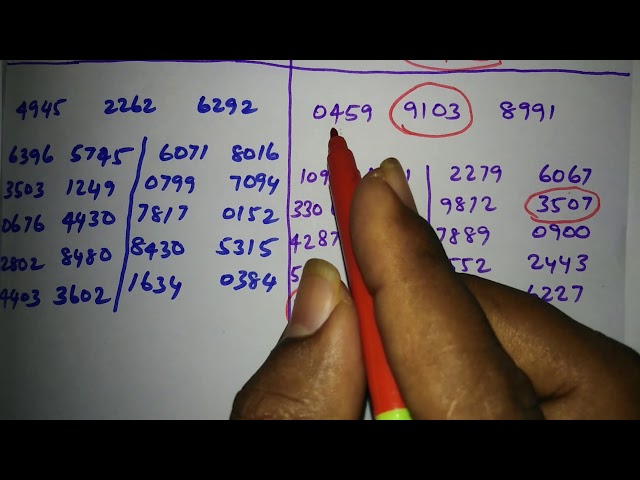 4945 2262 6292
6396 5745 6071 8016
3503 1249 0799 7094
0676 4430 7817 0152
2802 8480 8430 5315
4403 3602 1634 0384
0459 9103 8991
2279 6067
9872 3507
7889 0900
2443